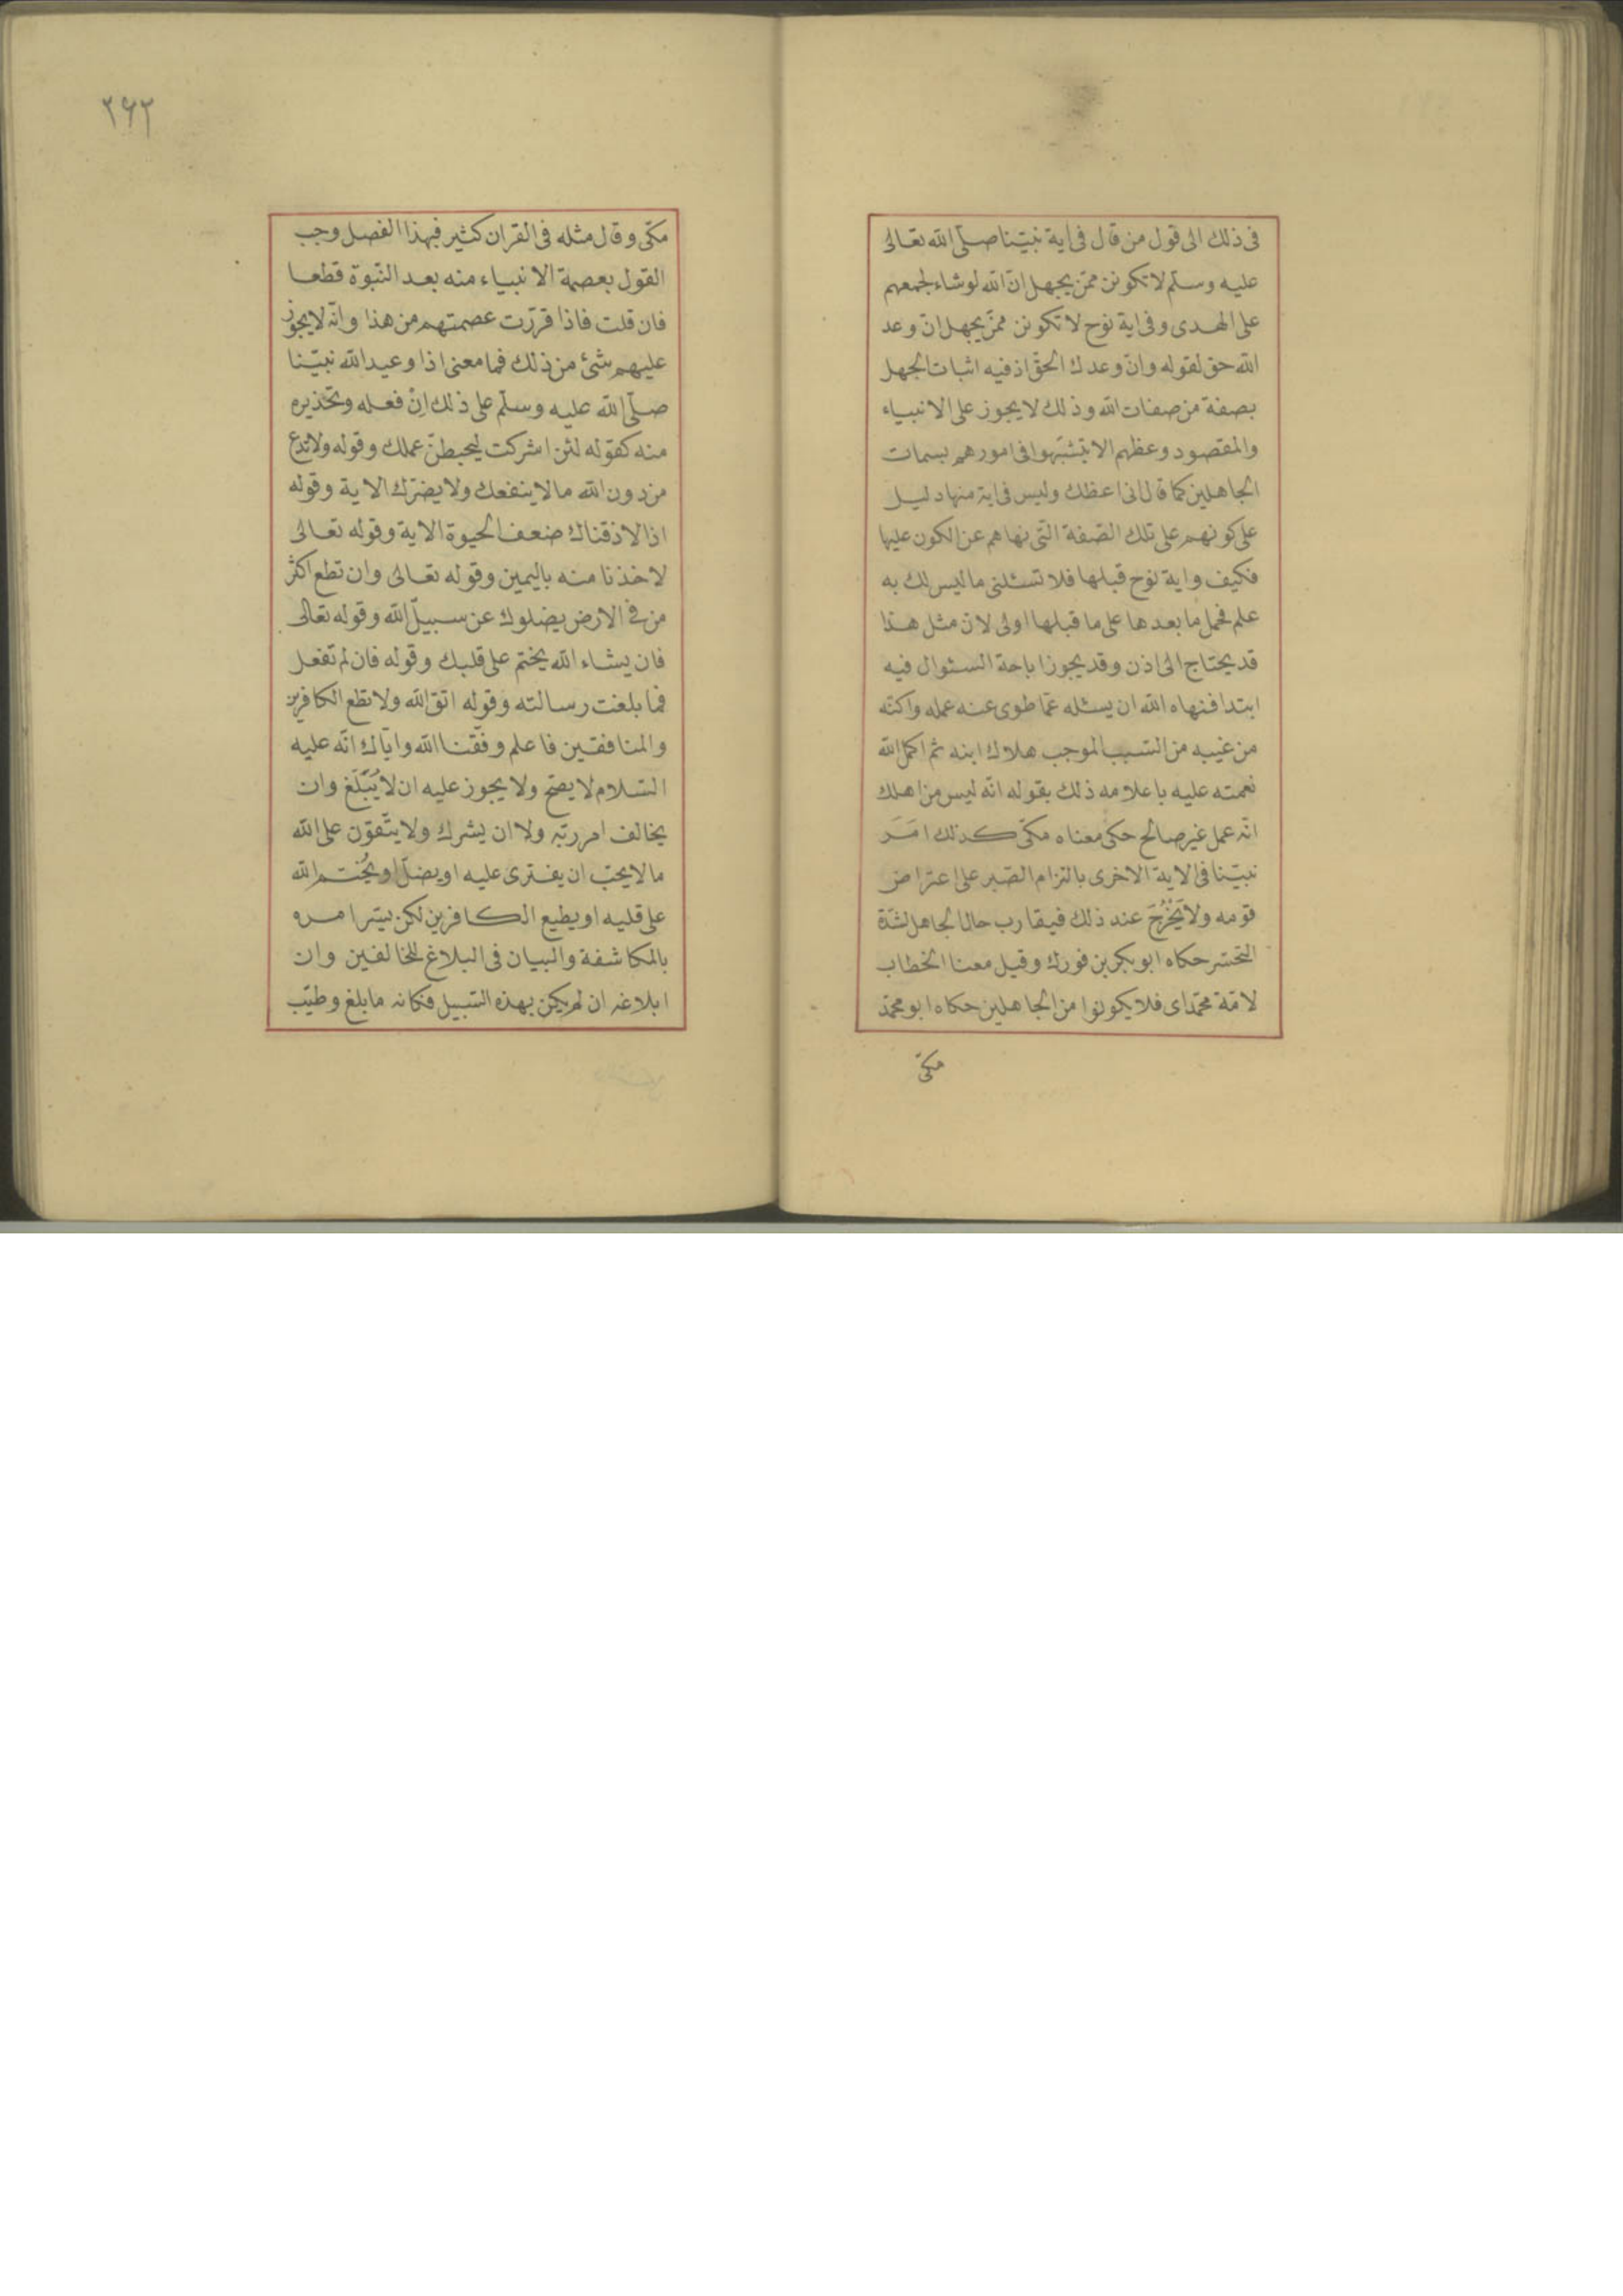 فى ذلك الى قول من قال فى اية نبيّنا صلّى الله تعالى
عليه وسلّم لا تكونن ممّن يجهل انّ الله لو شاء لجمعهم
على الهدى وفى اية نوح لا تكونن ممّن يجهل انّ وعد
الله حق لقوله وانّ وعدك الحقّ اذ فيه اثبات الجهل
بصفة من صفات الله وذلك لا يجوز على الانبياء
والمقصود وعظهم الا يتشبّهوا فى امورهم بسمات
الجاهلين كما قال انى اعظك وليس فى اية منها دليل
على كونهم على تلك الصّفة التّى نهاهم عن الكون عليها
فكيف واية نوح قبلها فلا تسئلنى ما ليس لك به
علم فحمل ما بعدها على ما قبلها اولى لانّ مثل هذا
قد يحتاج الى اذن وقد يجوز اباحة السئوال فيه
ابتدا فنهاه الله ان يسئله عمّا طوى عنه عمله واكنّه
من غيبه من السّبب الموجب هلاك ابنه ثم اكمل الله
نعمته عليه باعلامه ذلك بقوله انّه ليس من اهلك
انّه عمل غير صالح حكى معناه مكّى كذلك امَرَ
نبيّنا فى الاية الاخرى بالتزام الصّبر على اعتراض
قومه ولا يَخْرُجَ عند ذلك فيقارب حال الجاهل لشدّة
التحسّر حكاه ابو بكر بن فورك وقيل معنا الخطاب
لامّة محمّد اى فلا يكونوا من الجاهلين حكاه ابو محمّد
مكّى
٢٦٢
مكّى وقال مثله فى القران كثير فبهذا الفصل وجب
القول بعصمة الانبياء منه بعد النّبوة قطعا
فان قلت فاذا قرّرت عصمتهم من هذا وانّه لا يجوز
عليهم شئ من ذلك فما معنى اذا وعيد الله نبيّنا
صلّى الله عليه وسلّم على ذلك اِنْ فعله وتحذيره
منه كقوله لئن اشركت ليحبطنّ عملك وقوله ولا تدع
من دون الله ما لا ينفعك ولا يضرّك الاية وقوله
اذا لاذقناك ضعف الحيوة الاية وقوله تعالى
لاخذنا منه باليمين وقوله تعالى وان تطع اكثر
من فى الارض يضلوك عن سبيل الله وقوله تعالى
فان يشاء الله يختم على قلبك وقوله فان لم تفعل
فما بلغت رسالته وقوله اتق الله ولا تطع الكافرين
والمنافقين فاعلم وفّقنا الله وايّاك انّه عليه
السّلام لا يصحّ ولا يجوز عليه ان لا يُبَلّغ وان
يخالف امر ربّه ولا ان يشرك ولا يتّقوّن على الله
ما لا يحبّ ان يفترى عليه او يضلّ او يُختم الله
على قلبه او يطيع الكافرين لكن يسّر امره
بالمكاشفة والبيان فى البلاغ للمخالفين وان
ابلاغه ان لم يكن بهذه السّبيل فكانه ما بلغ وطيّب